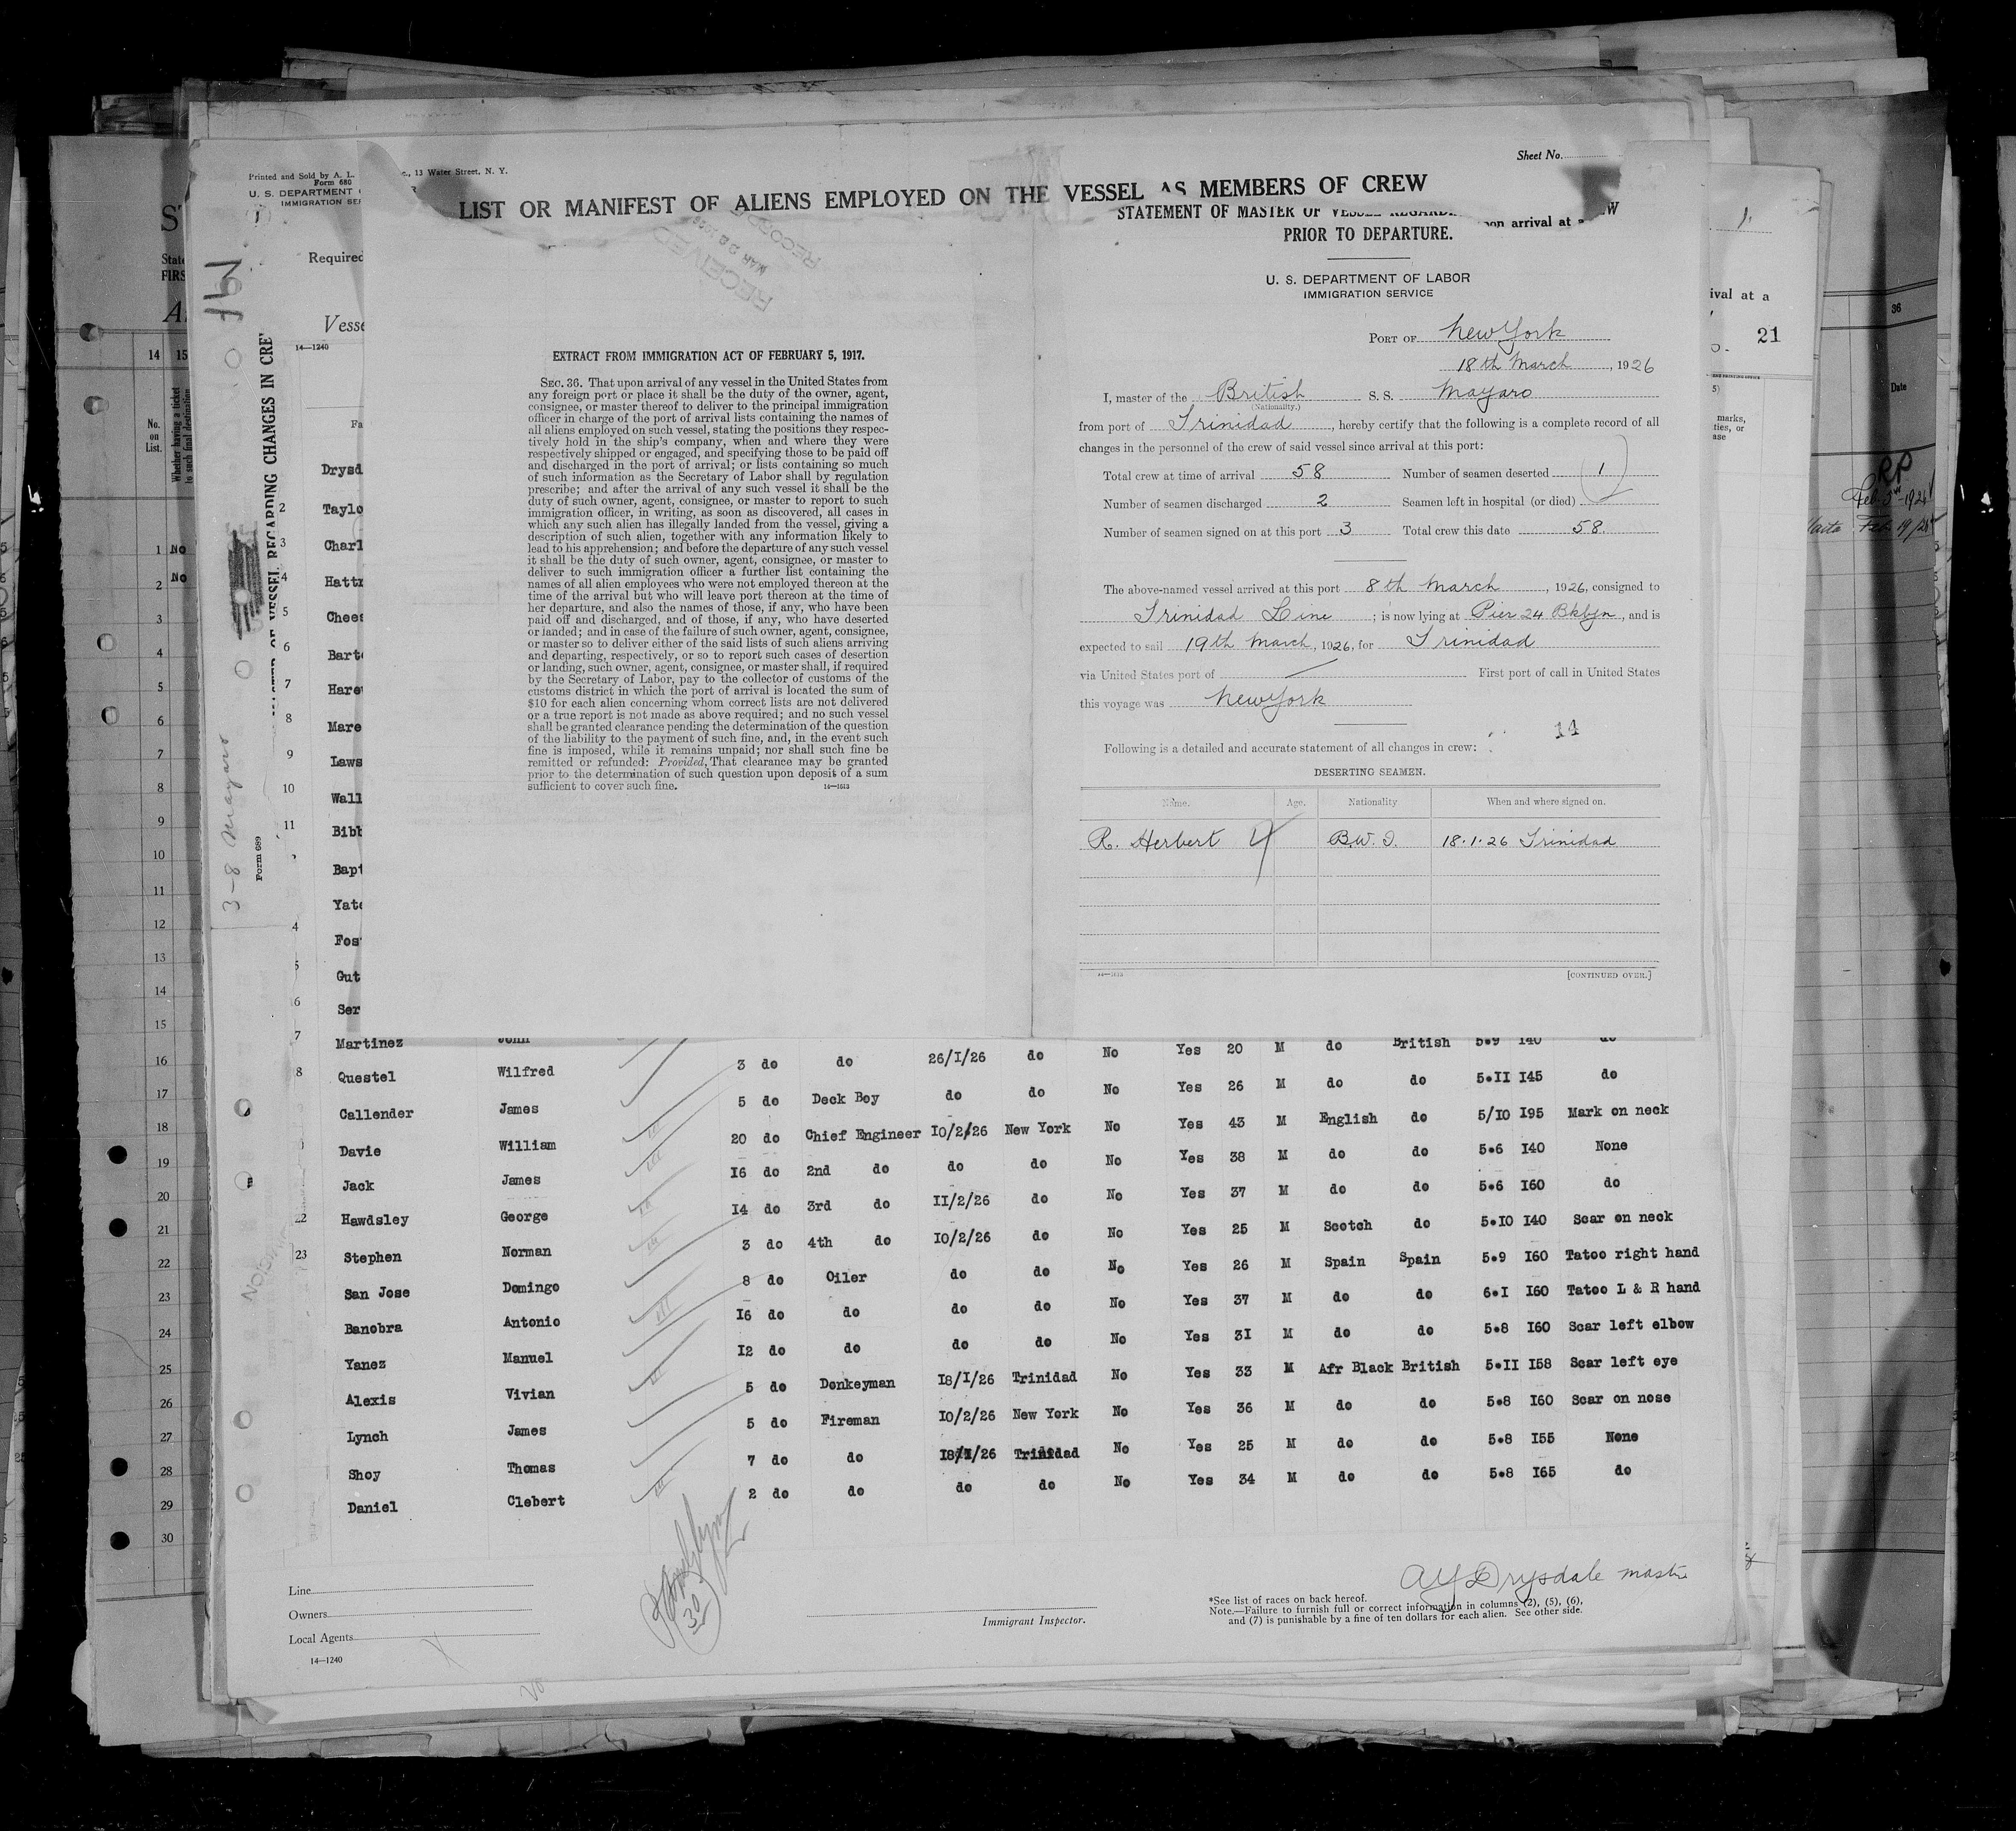 Sheet No.
Printed and Sold by A. L.
Form 680
, 13 Water Street, N. Y.
U. S. DEPARTMENT
IMMIGRATION SER
LIST OR MANIFEST OF ALIENS EMPLOYED ON THE VESSEL AS MEMBERS OF CREW
Required
upon arrival at a
Vesse
14—1240
REGARDING CHANGES IN CREW
Form 689
3-8 Mayaro
RECEIVED
MAR 22 1926
RECORD
EXTRACT FROM IMMIGRATION ACT OF FEBRUARY 5, 1917.
SEC. 36. That upon arrival of any vessel in the United States from
any foreign port or place it shall be the duty of the owner, agent,
consignee, or master thereof to deliver to the principal immigration
officer in charge of the port of arrival lists containing the names of
all aliens employed on such vessel, stating the positions they respec-
tively hold in the ship's company, when and where they were
respectively shipped or engaged, and specifying those to be paid off
and discharged in the port of arrival; or lists containing so much
of such information as the Secretary of Labor shall by regulation
prescribe; and after the arrival of any such vessel it shall be the
duty of such owner, agent, consignee, or master to report to such
immigration officer, in writing, as soon as discovered, all cases in
which any such alien has illegally landed from the vessel, giving a
description of such alien, together with any information likely to
lead to his apprehension; and before the departure of any such vessel
it shall be the duty of such owner, agent, consignee, or master to
deliver to such immigration officer a further list containing the
names of all alien employees who were not employed thereon at the
time of the arrival but who will leave port thereon at the time of
her departure, and also the names of those, if any, who have been
paid off and discharged, and of those, if any, who have deserted
or landed; and in case of the failure of such owner, agent, consignee,
or master so to deliver either of the said lists of such aliens arriving
and departing, respectively, or so to report such cases of desertion
or landing, such owner, agent, consignee, or master shall, if required
by the Secretary of Labor, pay to the collector of customs of the
customs district in which the port of arrival is located the sum of
$10 for each alien concerning whom correct lists are not delivered
or a true report is not made as above required; and no such vessel
shall be granted clearance pending the determination of the question
of the liability to the payment of such fine, and, in the event such
fine is imposed, while it remains unpaid; nor shall such fine be
remitted or refunded: Provided, That clearance may be granted
prior to the determination of such question upon deposit of a sum
sufficient to cover such fine. 14—1613
STATEMENT OF MASTER OF VESSEL REGARD
PRIOR TO DEPARTURE.
U. S. DEPARTMENT OF LABOR
IMMIGRATION SERVICE
PORT OF New York
18th March, 1926
I, master of the British S. S. Mayaro
(Nationality.)
from port of Trinidad, hereby certify that the following is a complete record of all
changes in the personnel of the crew of said vessel since arrival at this port:
Total crew at time of arrival 58 Number of seamen deserted 1
Number of seamen discharged 2 Seamen left in hospital (or died)
Number of seamen signed on at this port 3 Total crew this date 58.
The above-named vessel arrived at this port 8th March, 1926, consigned to
Trinidad Line; is now lying at Pier 24 Bklyn, and is
expected to sail 19th March, 1926, for Trinidad
via United States port of — First port of call in United States
this voyage was New York
14
Following is a detailed and accurate statement of all changes in crew:
DESERTING SEAMEN.
Name. Age. Nationality When and where signed on.
R. Herbert B.W.I. 18.1.26 Trinidad
14—1613 [CONTINUED OVER.]
Drysd
Taylo
Charl
Hattr
Chees
Barto
Hare
Mare
Laws
Wall
Bibb
Bapt
Yate
Fos
Gut
Ser
Martinez John 3 do do 26/I/26 do No Yes 20 M do British 5•9 I40 do
Questel Wilfred 5 do Deck Boy do do No Yes 26 M do do 5•II I45 do
Callender James 20 do Chief Engineer I0/2/26 New York No Yes 43 M English do 5/I0 I95 Mark on neck
Davie William I6 do 2nd do do do No Yes 38 M do do 5•6 I40 None
Jack James I4 do 3rd do II/2/26 do No Yes 37 M do do 5•6 I60 do
Hawdsley George 3 do 4th do I0/2/26 do No Yes 25 M Scotch do 5•I0 I40 Scar on neck
Stephen Norman 8 do Oiler do do No Yes 26 M Spain Spain 5•9 I60 Tatoo right hand
San Jose Domingo I6 do do do do No Yes 37 M do do 6•I I60 Tatoo L & R hand
Banobra Antonio I2 do do do do No Yes 3I M do do 5•8 I60 Scar left elbow
Yanez Manuel 5 do Donkeyman I8/I/26 Trinidad No Yes 33 M Afr Black British 5•II I58 Scar left eye
Alexis Vivian 5 do Fireman I0/2/26 New York No Yes 36 M do do 5•8 I60 Scar on nose
Lynch James 7 do do I8/I/26 Trinidad No Yes 25 M do do 5•8 I55 None
Shoy Thomas 2 do do do do No Yes 34 M do do 5•8 I65 do
Daniel Clebert
Line
Owners
Local Agents
14—1240
30
Immigrant Inspector.
A Y Drysdale master
*See list of races on back hereof.
Note.—Failure to furnish full or correct information in columns (2), (5), (6),
and (7) is punishable by a fine of ten dollars for each alien. See other side.
State
FIRS
14 15
No.
on
List.
Whether having a ticket
to such final destination
1 No
2 No
3
4
5
6
7
8
9
10
11
12
13
14
15
16
17
18
19
20
21
22
23
24
25
26
27
28
29
30
ival at a
21
marks,
ties, or
36
Date
RP
Feb. 5 -1926
Feb 19/26